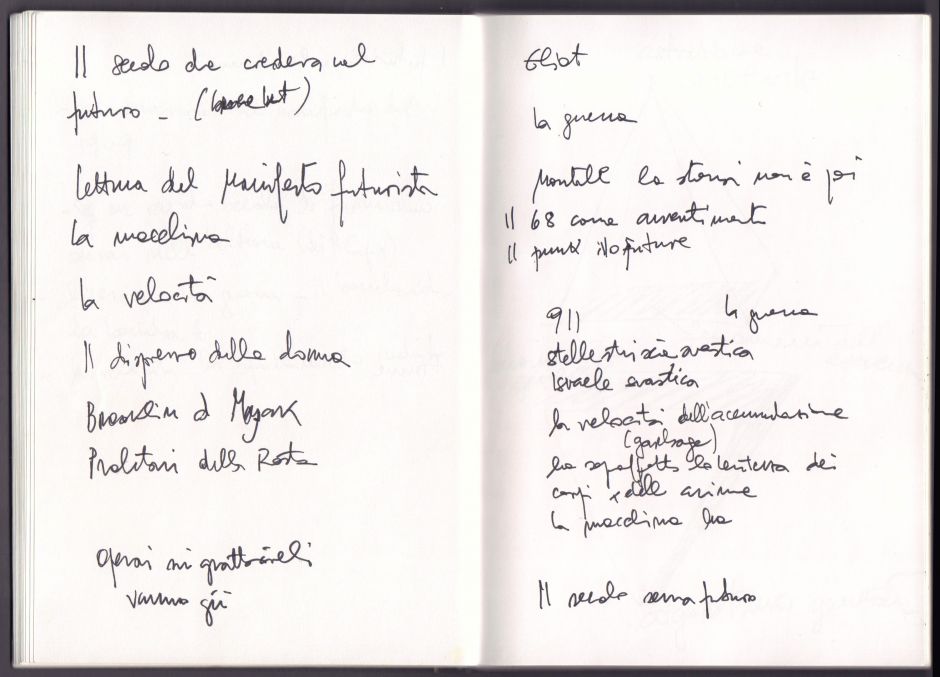 Il secolo che credeva nel
futuro - ( )
Lettura del Manifesto futurista
la macchina
la velocità
Il disprezzo della donna
Proletari della Rosta
operai sui grattacieli
vanno giù
Eliot
la guerra
Montale la storia non è poi
Il 68 come avvertimento
Il punk No future
911 la guerra
stellestrisce svastica
Israele svastica
la velocità dell'accumulazione
(garbage)
ha sopraffatto la lentezza dei
corpi e delle anime
la macchina ha
Il secolo senza futuro